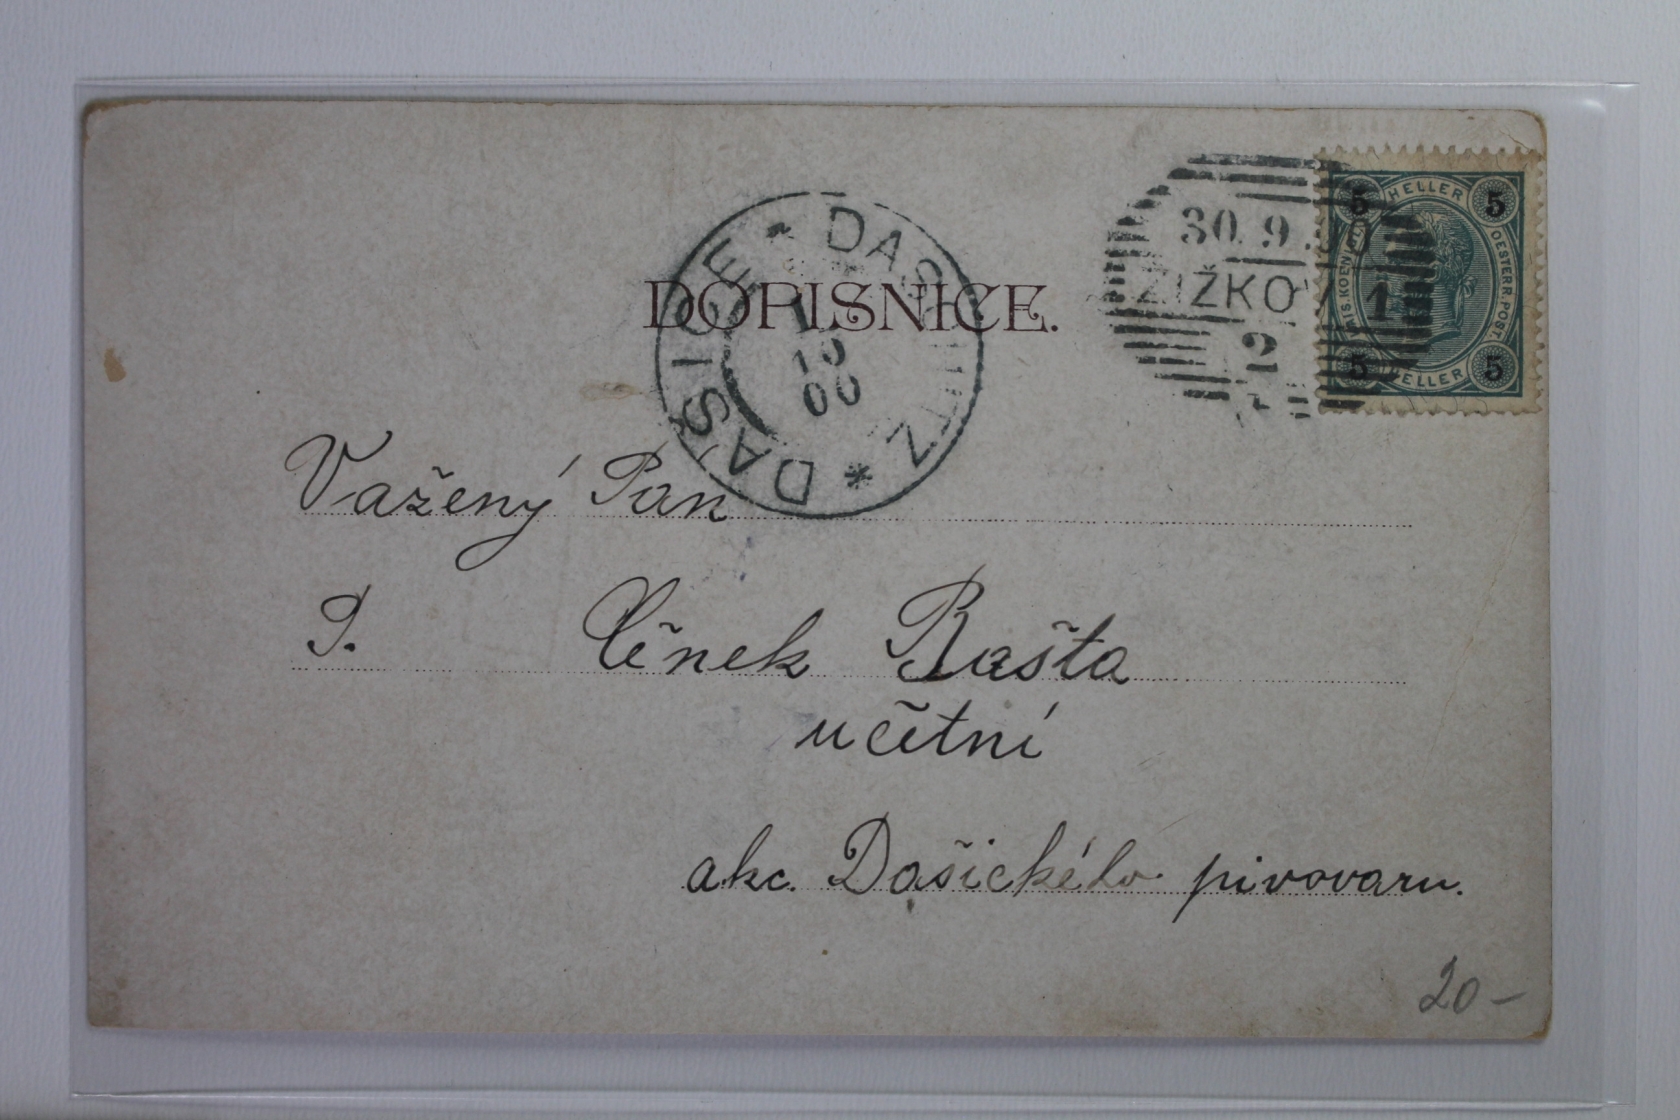 DOPISNICE.
DAŠICE * DAS ITZ *
1
10
00
30. 9.
ŽIŽKOV 1
2
5 HELLER 5
KAIS. KOENIGL.
OESTERR. POST.
5 HELLER 5
Važený Pan
P. Čeněk Bašta
učetní
akc. Dašického pivovaru.
20-